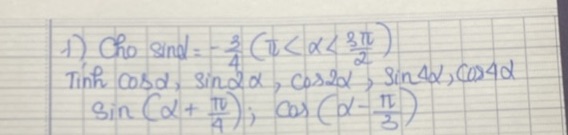 1) Cho sinα = -3/4 (π < α < 3π/2)
Tính cosα, sin2α, cos2α, sin4α, cos4α
sin(α + π/4); cos(α - π/3)